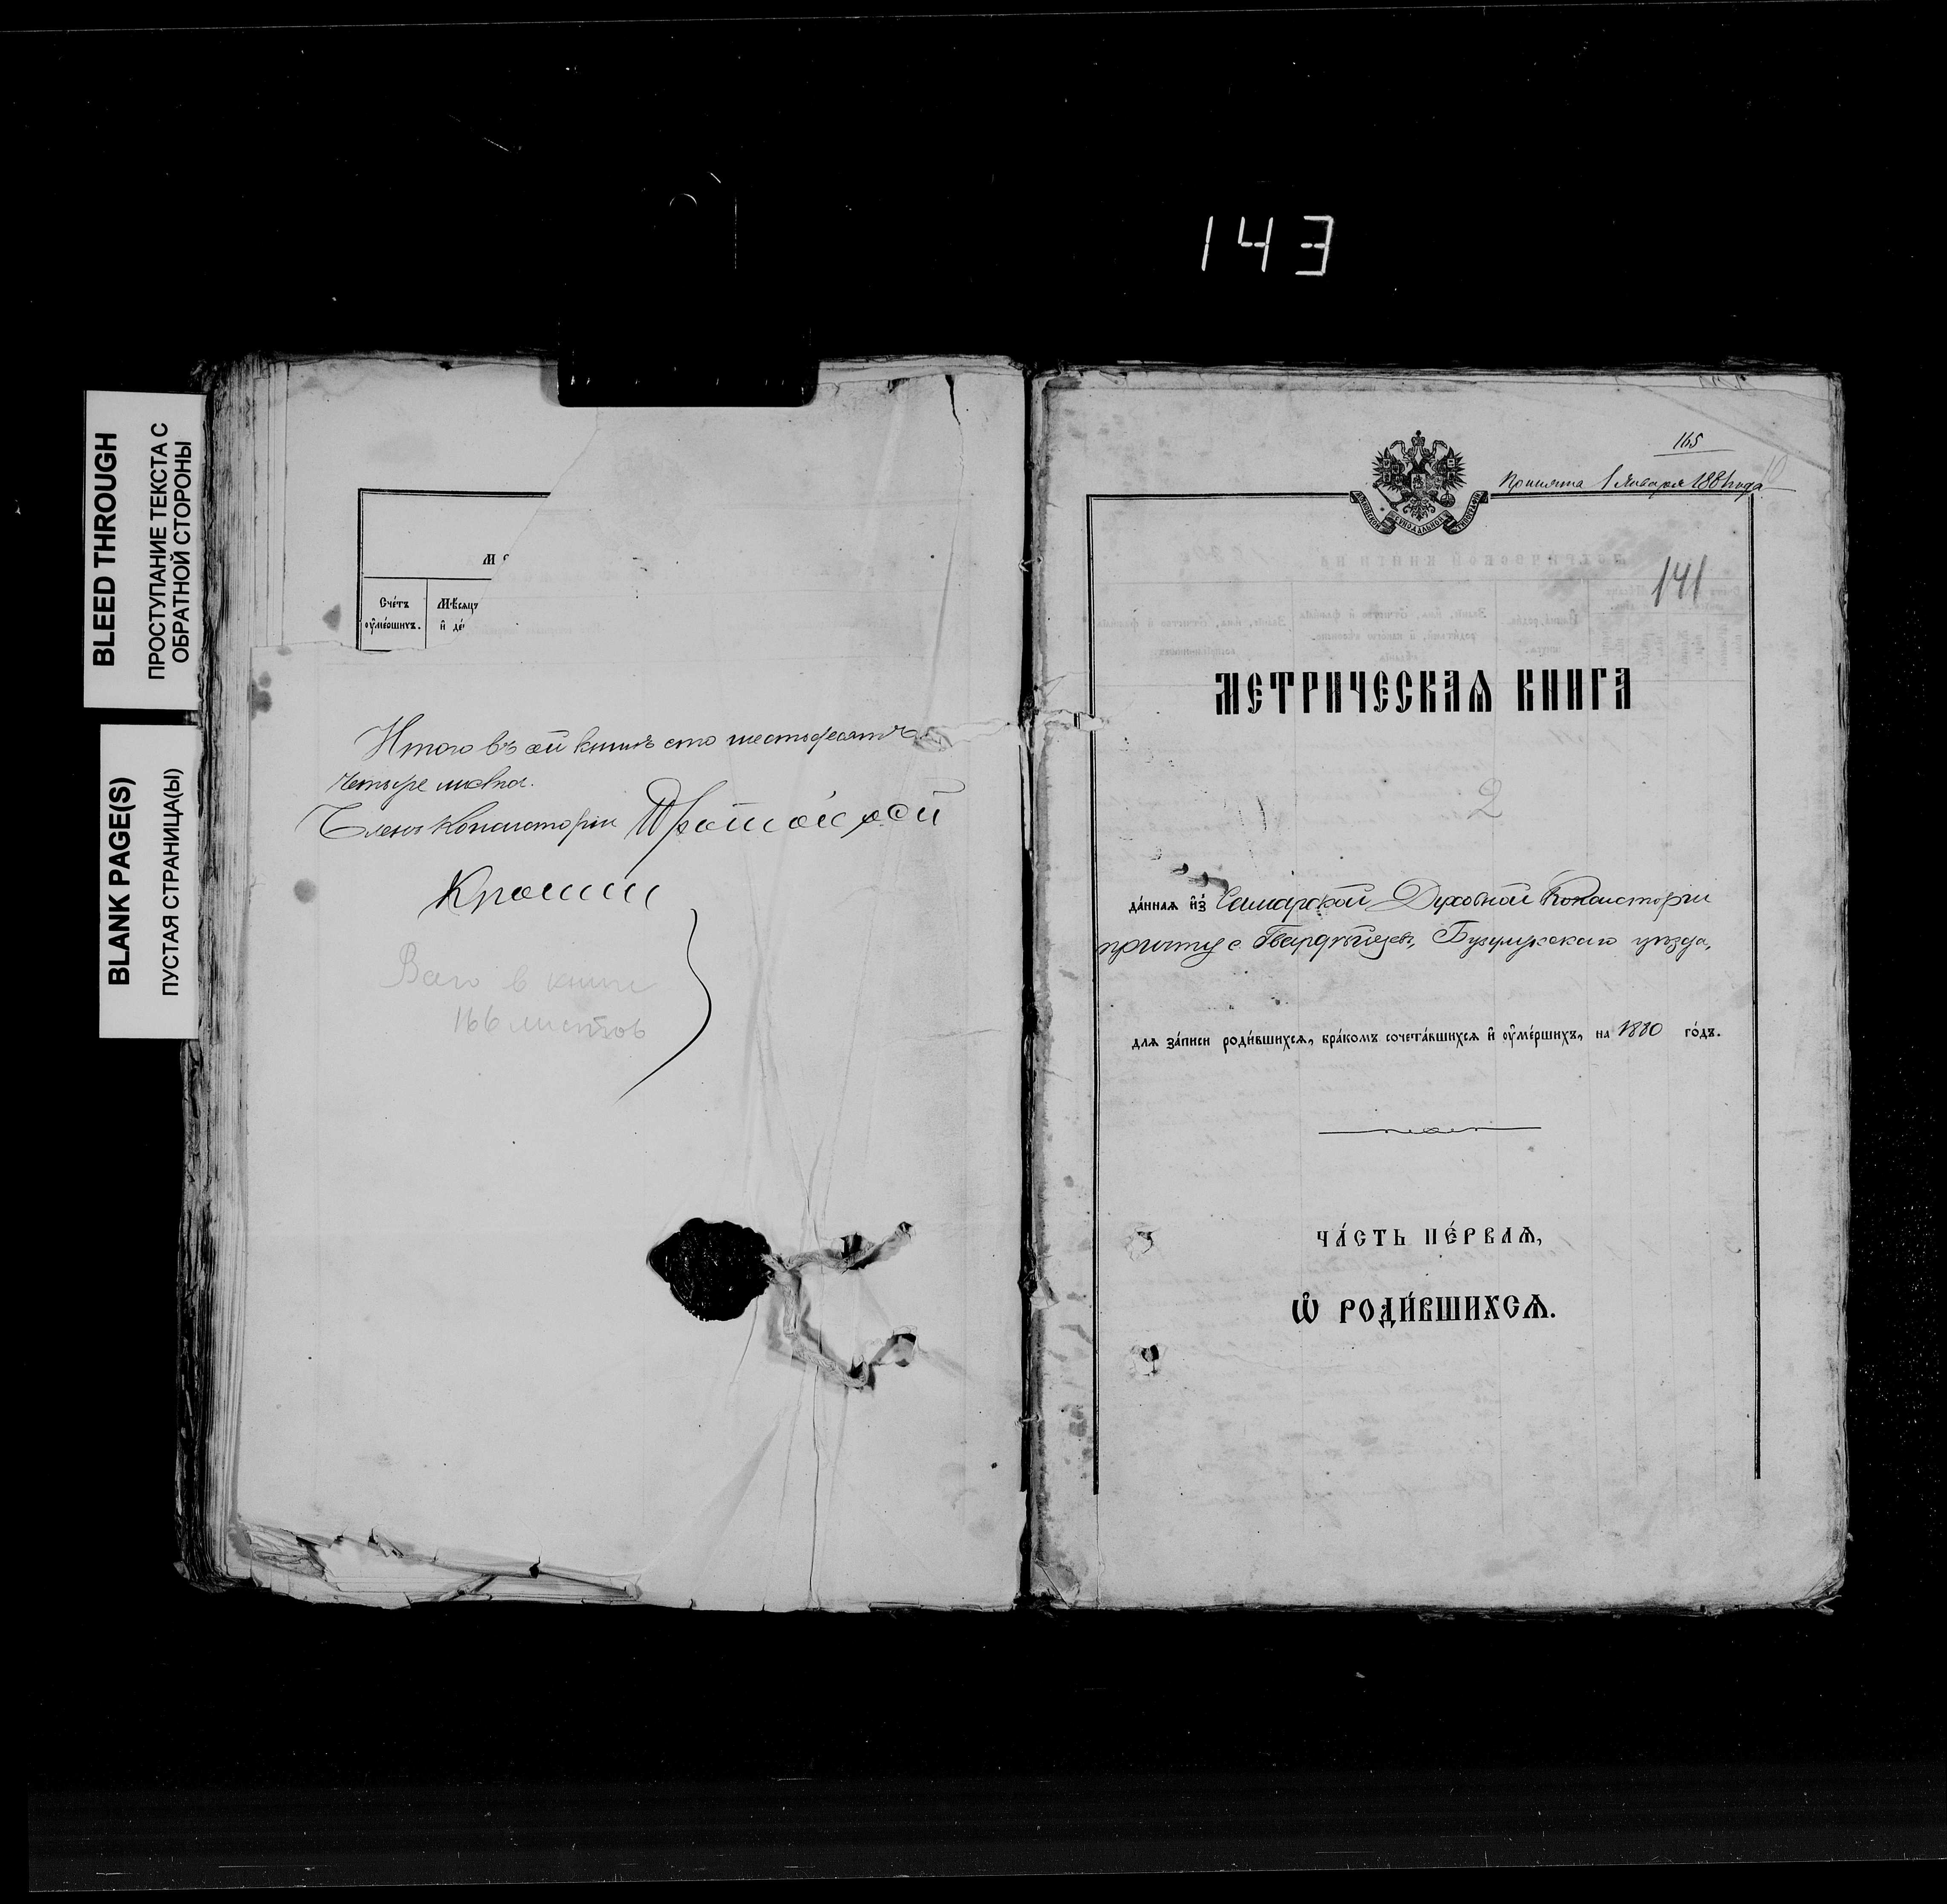 143
BLEED THROUGH
ПРОСТУПАНИЕ ТЕКСТА С
ОБРАТНОЙ СТОРОНЫ
BLANK PAGE(S)
ПУСТАЯ СТРАНИЦА(Ы)
Счетъ
оумершихъ.
Мѣсяцъ
и де
Итого въ сей книгѣ сто шестьдесятъ
четыре листа.
Членъ Консисторіи Протоіерей
Всего в книге
166 листов
165
Принята 1 Января 1881 года
СѴНОДАЛЬНОЙ
141
МЕТРИЧЕСКАѦ КНИГА
2
да́ннаѧ и҆з̾ Самарской Духовной Консисторіи
причту с. Гвардѣйцевъ, Бузулукскаго уѣзда,
длѧ за́писи роди́вшихсѧ, бра́комъ сочета́вшихсѧ и҆ ᲂу҆ме́ршихъ, на 1880 го́дъ.
ЧА́СТЬ ПЕ́РВАѦ,
Ѡ҆ РОДИ́ВШИХСѦ.